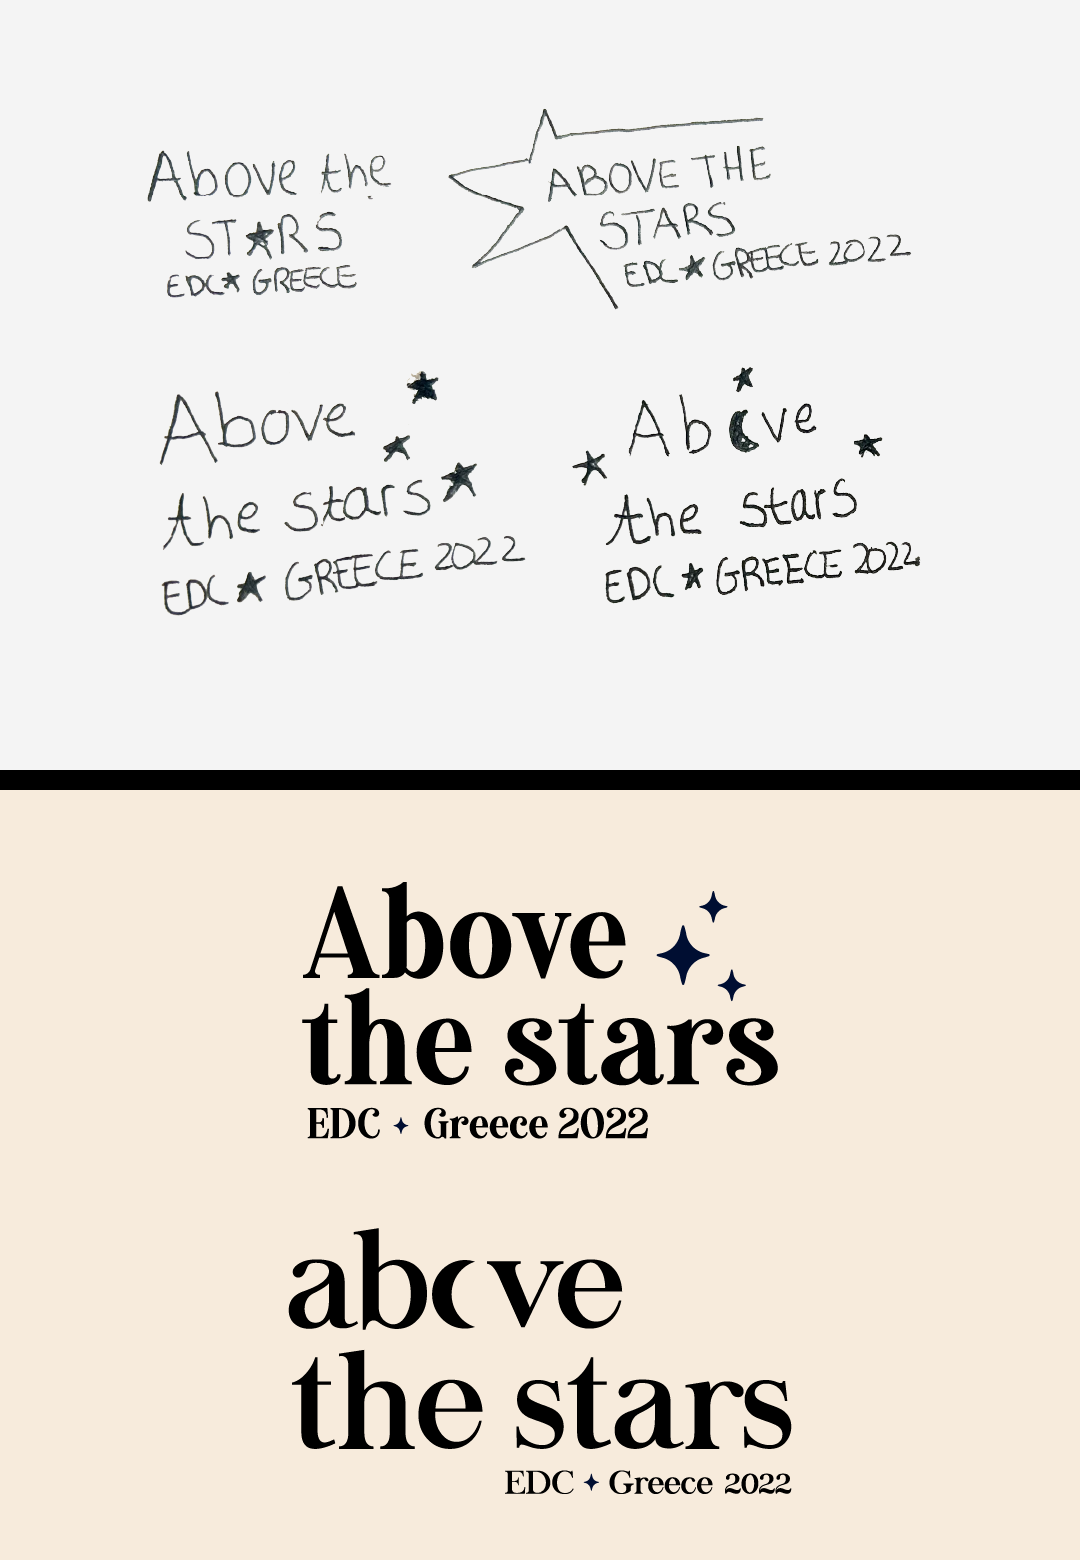 Above the
ST★RS
EDC★ GREECE
ABOVE THE
STARS
EDC★GREECE 2022
Above
the stars
EDC★ GREECE 2022
Ab☾ve
the stars
EDC ★ GREECE 2022
Above
the stars
EDC ✦ Greece 2022
ab☾ve
the stars
EDC ✦ Greece 2022